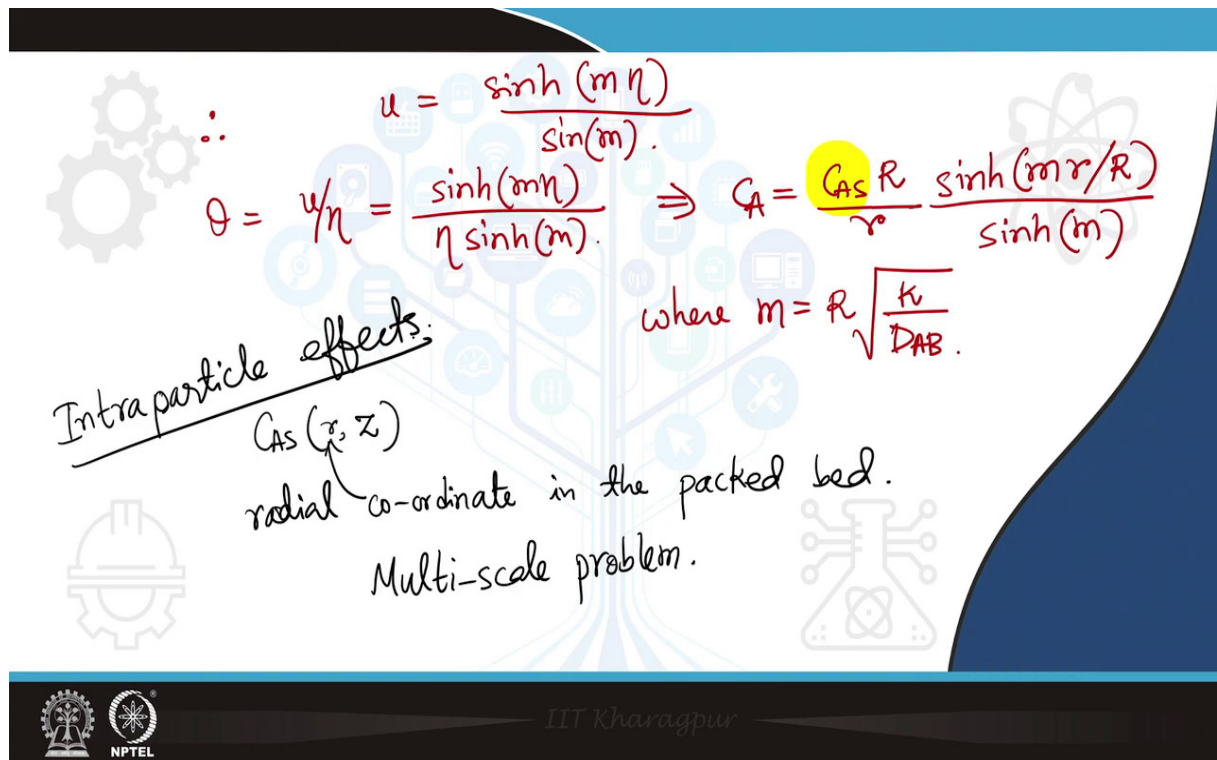 ∴ u = sinh (mη) / sin(m).
θ = u/η = sinh(mη) / η sinh(m). ⇒ C_A = C_AS R / r sinh (m r/R) / sinh (m)
where m = R √(K / D_AB).
Intraparticle effects.
C_AS (r, z)
radial co-ordinate in the packed bed.
Multi-scale problem.
IIT Kharagpur
NPTEL